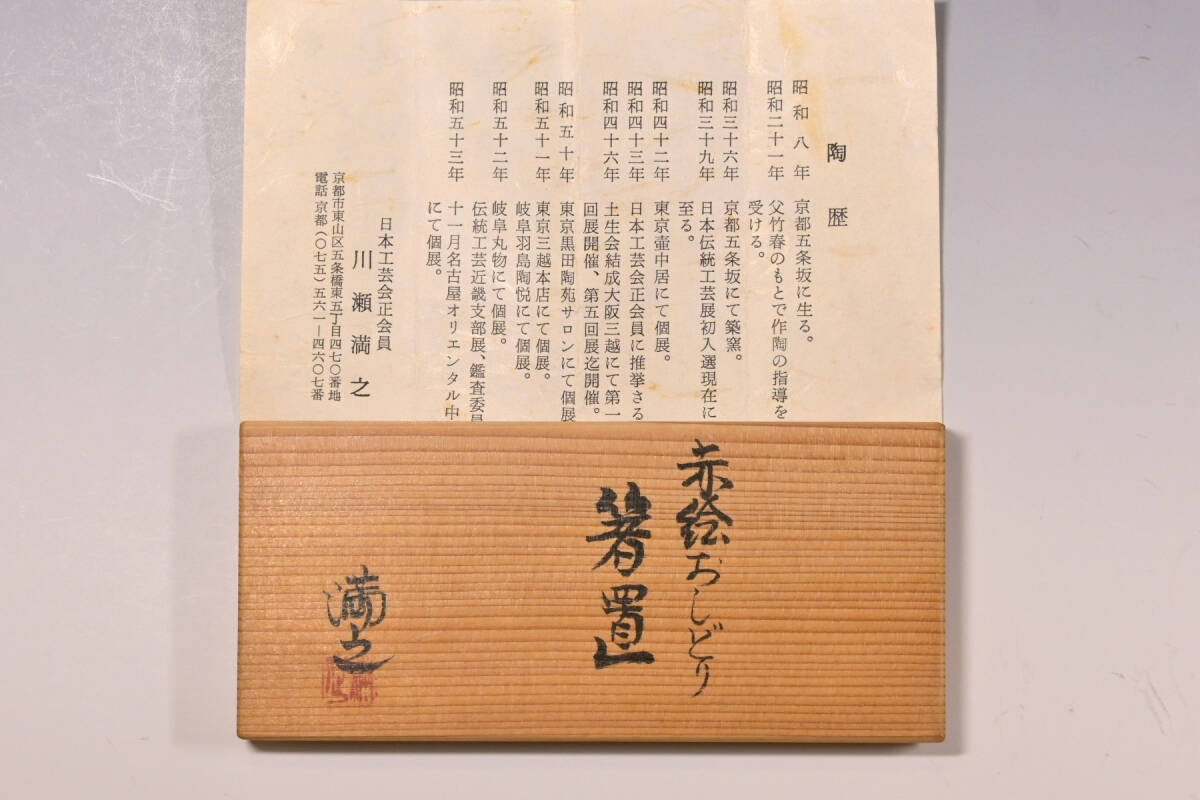 陶歴
昭和八年 京都五条坂に生る。
昭和二十一年 父竹春のもとで作陶の指導を
受ける。
昭和三十六年 京都五条坂にて築窯。
昭和三十九年 日本伝統工芸展初入選現在に
至る。
昭和四十二年 東京壷中居にて個展。
昭和四十三年 日本工芸会正会員に推挙さる
昭和四十六年 土生会結成大阪三越にて第一
回展開催、第五回展迄開催。
昭和五十年 東京黒田陶苑サロンにて個展
昭和五十一年 東京三越本店にて個展。
岐阜羽島陶悦にて個展。
昭和五十二年 岐阜丸物にて個展。
伝統工芸近畿支部展、鑑査委員
昭和五十三年 十一月名古屋オリエンタル中
にて個展。
日本工芸会正会員
川瀬満之
京都市東山区五条橋東五丁目四七〇番地
電話京都(〇七五)五六一―四六〇七番
赤絵おしどり
箸置
満之